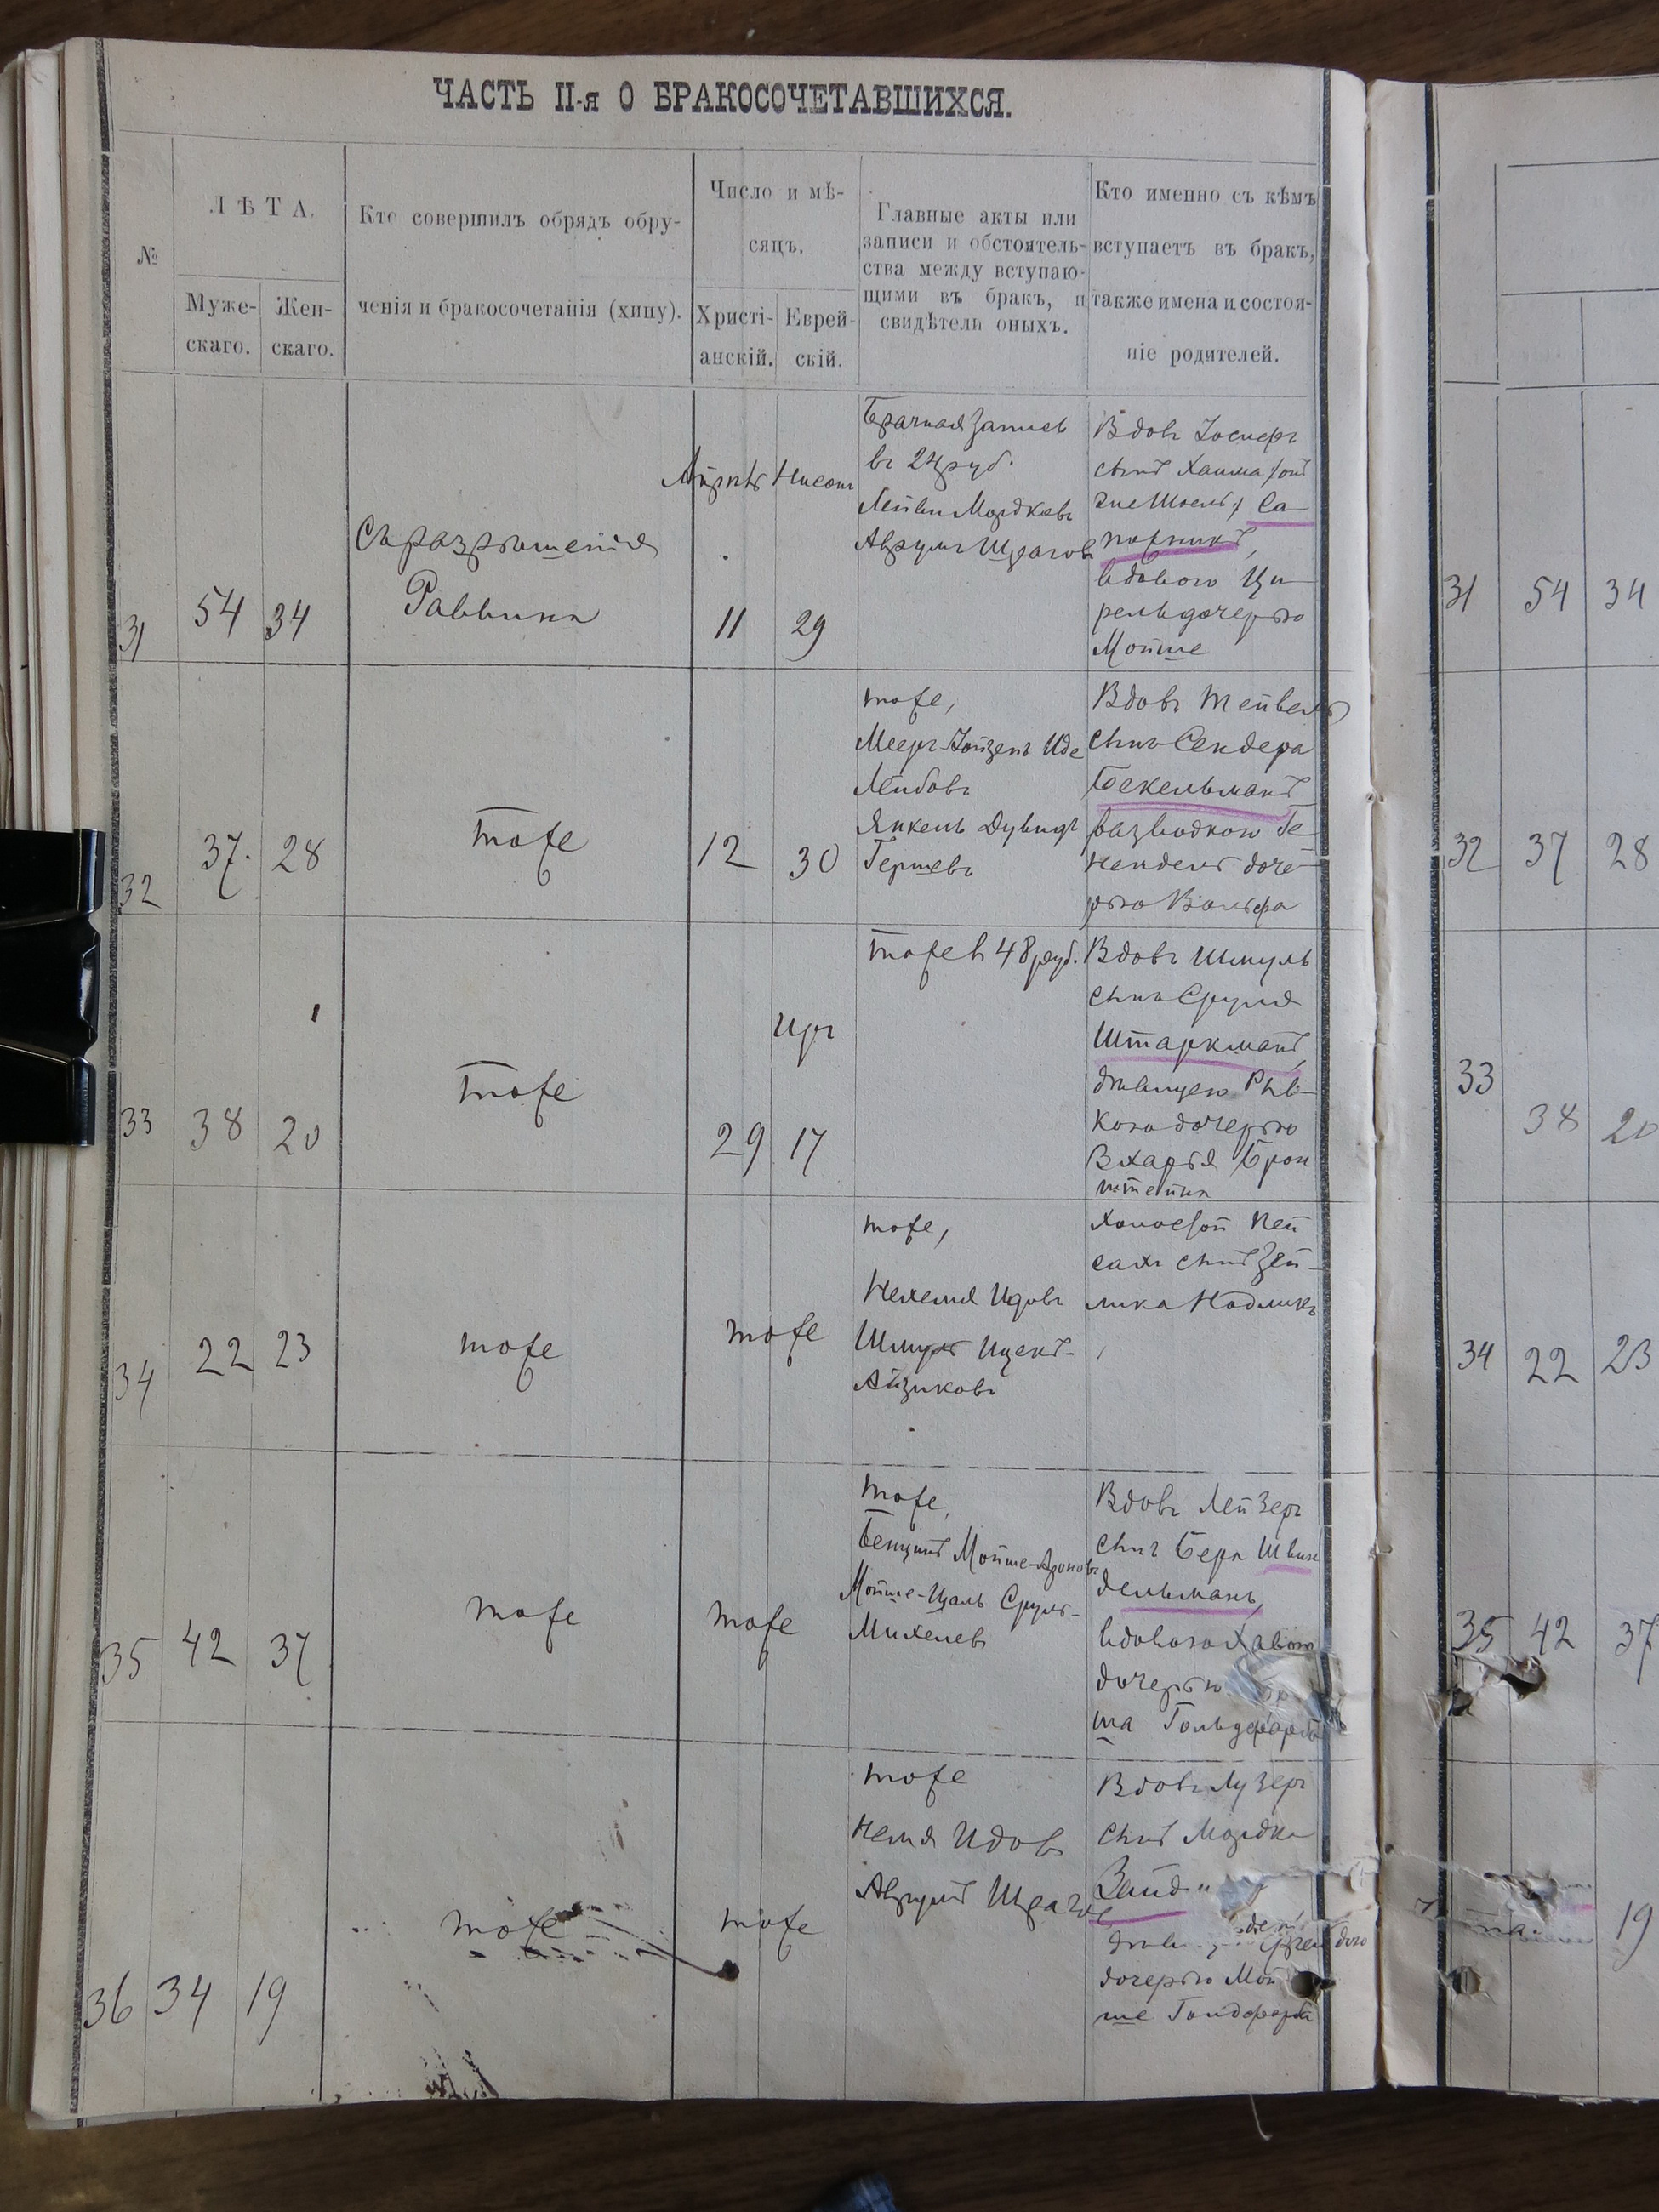 ЧАСТЬ II-я О БРАКОСОЧЕТАВШИХСЯ.
№
ЛѢТА.
Муже-
скаго.
Жен-
скаго.
Кто совершилъ обрядъ обру-
ченія и бракосочетанія (хипу).
Число и мѣ-
сяцъ.
Христі-
анскій.
Еврей-
скій.
Главные акты или
записи и обстоятель-
ства между вступаю-
щими въ бракъ, и
свидѣтели оныхъ.
Кто именно съ кѣмъ
вступаетъ въ бракъ,
также имена и состоя-
ніе родителей.
31
54
34
Съ разрѣшенія
Раввина
Апрѣль
11
Нисонъ
29
Брачная запись
въ 24 руб.
Лейви Мордковъ
Аврумъ Шраговъ
Вдовъ Іосифъ
сынъ Хаима
Са-
портикъ,
вдовою Ци-
рель дочерью
Мойше
31
54
34
32
37
28
тоже
12
30
тоже,
Лейбовъ
Янкель Дувидъ
Гершевъ
Вдовъ Тейвель
сынъ Сендера
Бекельманъ
разводкою Ге-
дочe-
рью Вольфа
32
37
28
33
38
20
тоже
29
Иръ
17
тоже въ 48 руб.
Вдовъ Шмуль
сынъ Сруля
Штаркманъ,
дѣвицею Рыв-
кою дочерью
Брон
штейна
33
38
20
34
22
23
тоже
тоже
тоже,
Нехемія Идовъ
Шмуль Иценъ-
Айзиковъ
Холостой Пей
сахъ сынъ Зей-
лика
34
22
23
35
42
37
тоже
тоже
тоже,
Бенционъ Мойше-Ароновъ
Мойше-Цаль Сруль-
Михелевъ
Вдовъ Лейзеръ
сынъ Бера Швин
дельманъ,
вдовою Хавою
дочерью
ша Гольдфарба
35
42
37
36
34
19
тоже
тоже
тоже
Немія Идовъ
Аврумъ Шраговъ
Вдовъ Лузеръ
сынъ Мордка
дочерью Мой
ше
19